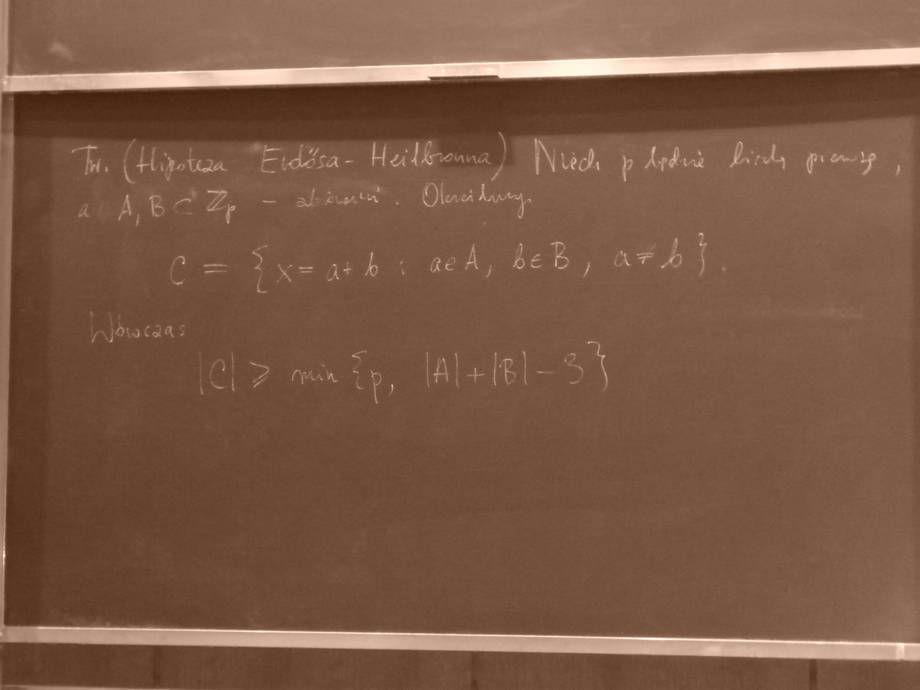 Tw. (Hipoteza Erdősa-Heilbronna) Niech p będzie liczbą pierwszą,
a A, B ⊂ ℤₚ - zbiorami. Określmy
C = {x = a + b : a∈A, b∈B, a≠b}.
Wówczas
|C| ⩾ min {p, |A|+|B|-3}